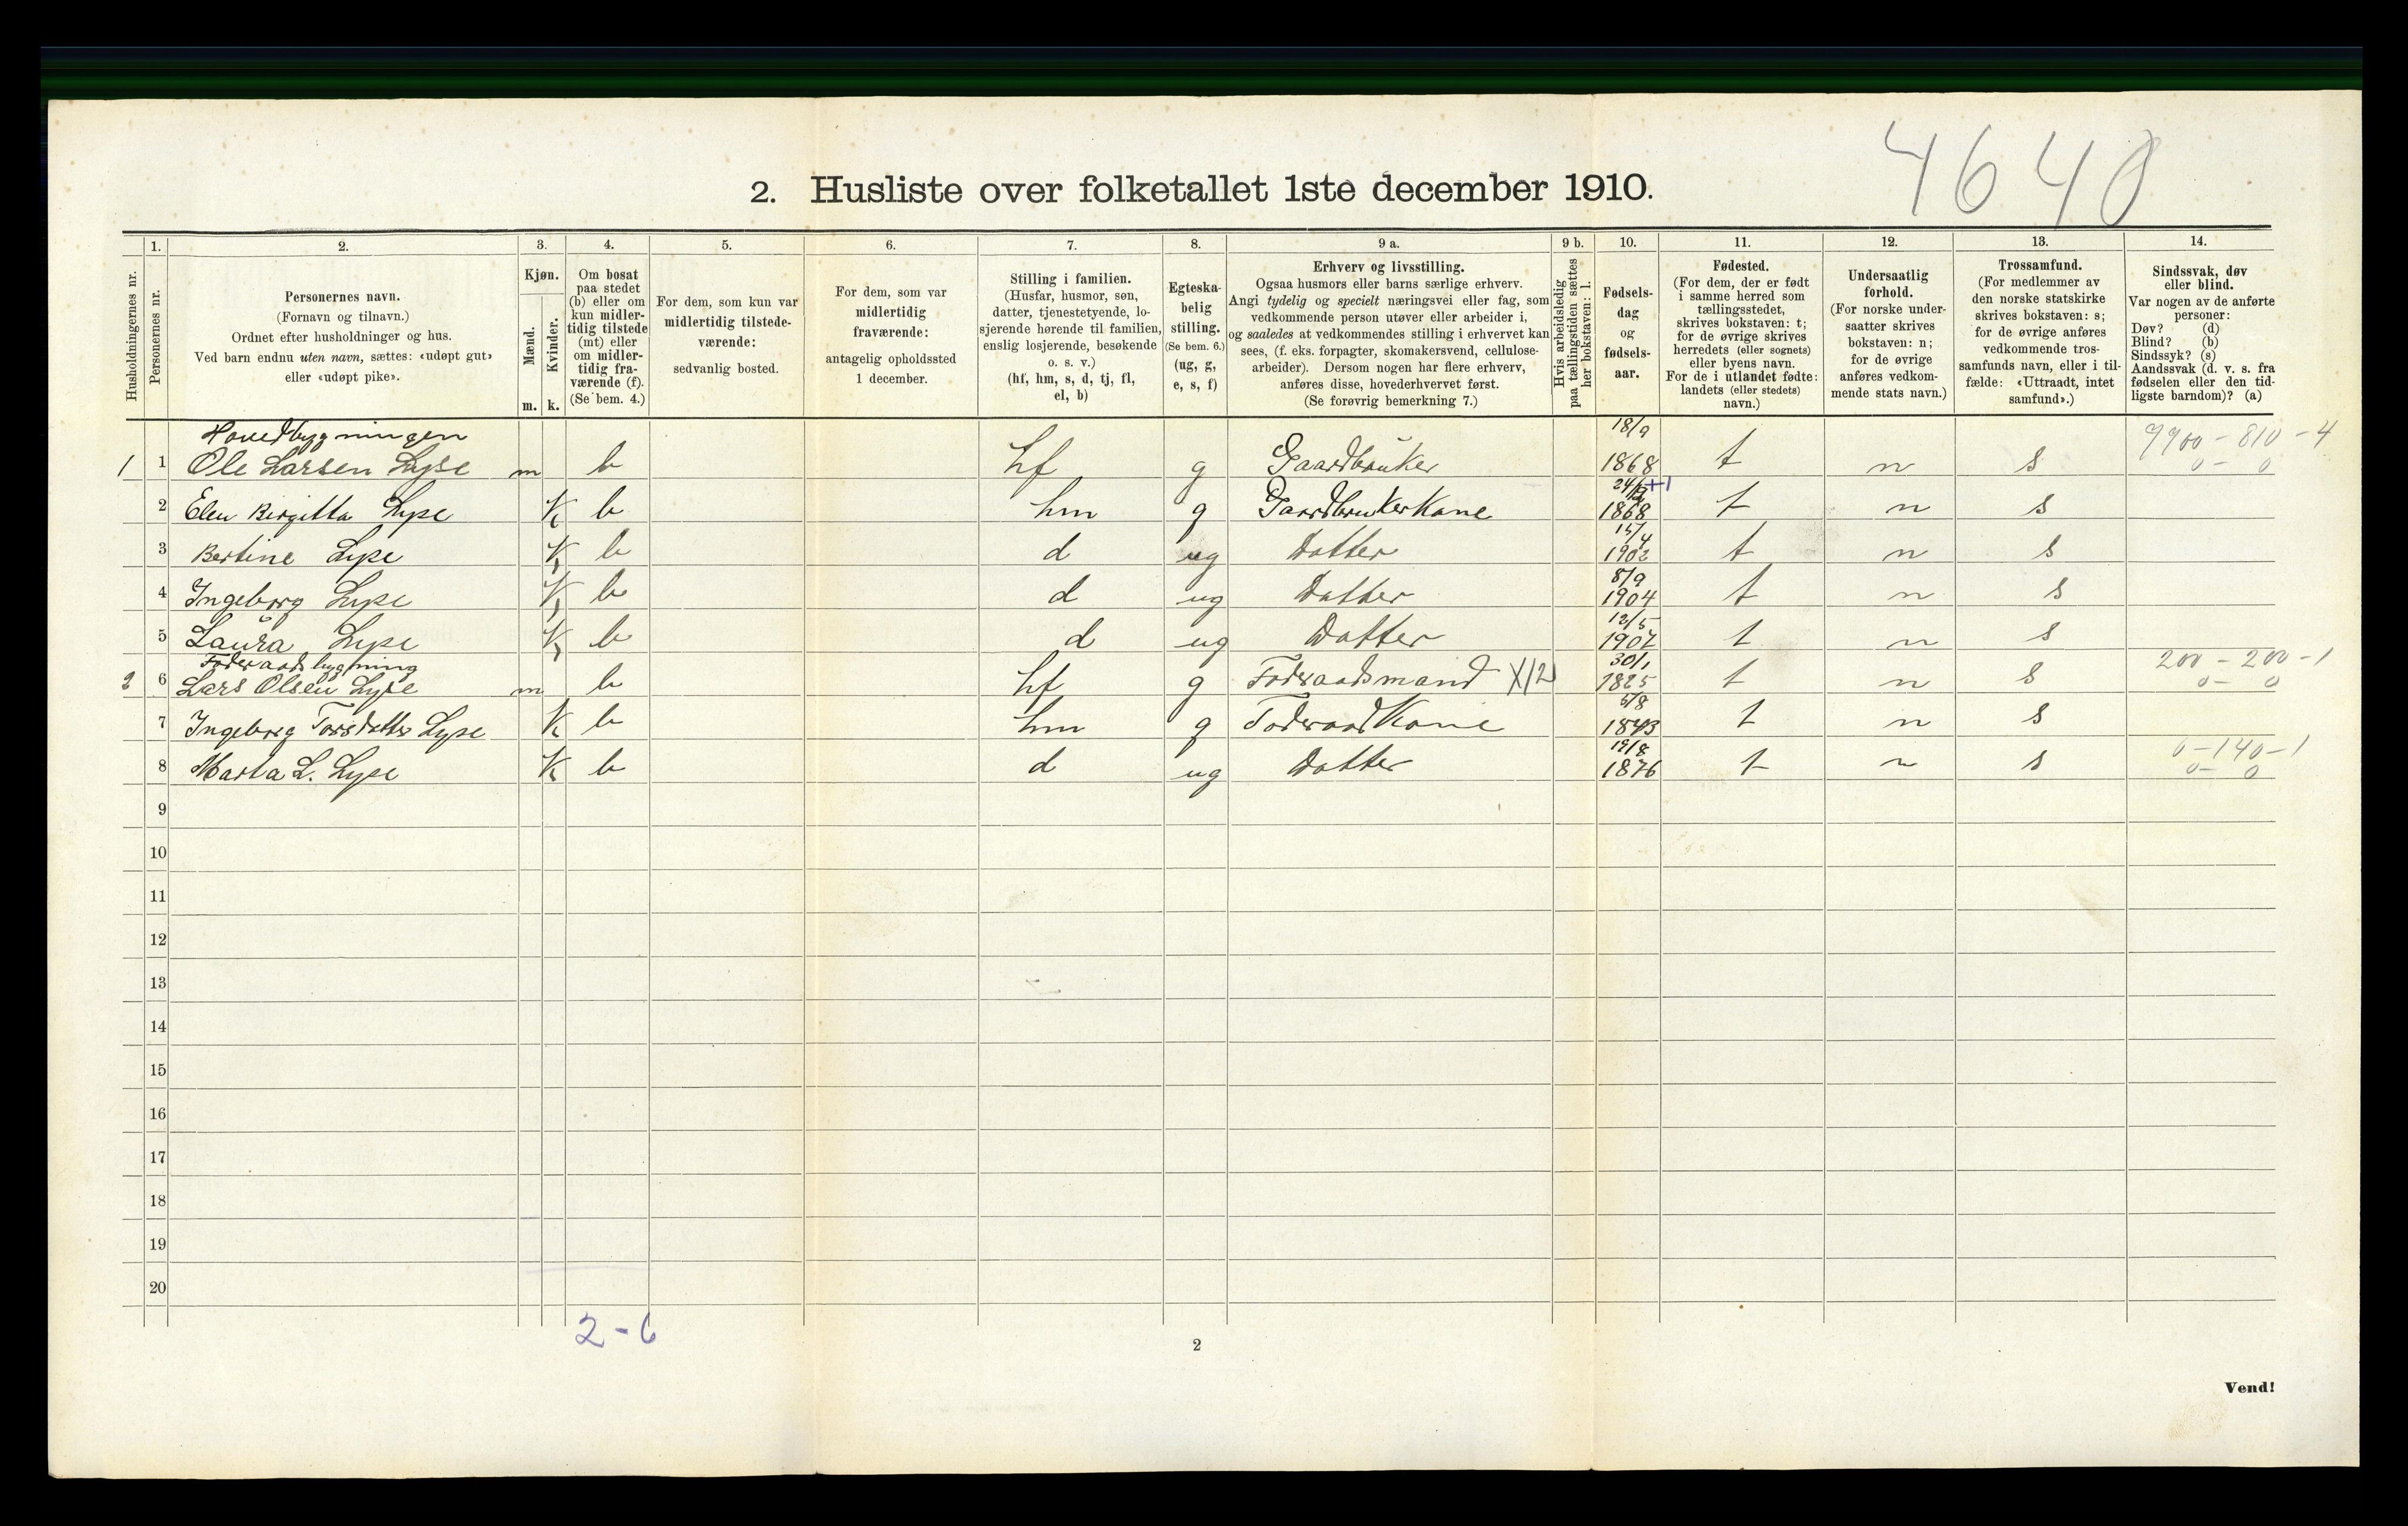 4640
2. Husliste over folketallet 1ste december 1910.
Husholdningernes nr.
1.
Personernes nr.
2.
Personernes navn.
(Fornavn og tilnavn.)
Ordnet efter husholdninger og hus.
Ved barn endnu uten navn, sættes: «udøpt gut»
eller «udøpt pike».
3.
Kjøn.
Mænd.
Kvinder.
m. k.
4.
Om bosat
paa stedet
(b) eller om
kun midler-
tidig tilstede
(mt) eller
om midler-
tidig fra-
værende (f).
(Se bem. 4.)
5.
For dem, som kun var
midlertidig tilstede-
værende:
sedvanlig bosted.
6.
For dem, som var
midlertidig
fraværende:
antagelig opholdssted
1 december.
7.
Stilling i familien.
(Husfar, husmor, søn,
datter, tjenestetyende, lo-
sjerende hørende til familien,
enslig losjerende, besøkende
o. s. v.)
(hf, hm, s, d, tj, fl,
el, b)
8.
Egteska-
belig
stilling.
(Se bem. 6.)
(ug, g,
e, s, f)
9 a.
Erhverv og livsstilling.
Ogsaa husmors eller barns særlige erhverv.
Angi tydelig og specielt næringsvei eller fag, som
vedkommende person utøver eller arbeider i,
og saaledes at vedkommendes stilling i erhvervet kan
sees, (f. eks. forpagter, skomakersvend, cellulose-
arbeider). Dersom nogen har flere erhverv,
anføres disse, hovederhvervet først.
(Se forøvrig bemerkning 7.)
9 b.
Hvis arbeidsledig
paa tællingstiden sættes
her bokstaven: l.
10.
Fødsels-
dag
og
fødsels-
aar.
11.
Fødested.
(For dem, der er født
i samme herred som
tællingsstedet,
skrives bokstaven: t;
for de øvrige skrives
herredets (eller sognets)
eller byens navn.
For de i utlandet fødte:
landets (eller stedets)
navn.)
12.
Undersaatlig
forhold.
(For norske under-
saatter skrives
bokstaven: n;
for de øvrige
anføres vedkom-
mende stats navn.)
13.
Trossamfund.
(For medlemmer av
den norske statskirke
skrives bokstaven: s;
for de øvrige anføres
vedkommende tros-
samfunds navn, eller i til-
fælde: «Uttraadt, intet
samfund».)
14.
Sindssvak, døv
eller blind.
Var nogen av de anførte
personer:
Døv? (d)
Blind? (b)
Sindssyk? (s)
Aandssvak (d. v. s. fra
fødselen eller den tid-
ligste barndom)? (a)
Hovedbygningen 18/9 9900 - 810 - 4
1 1 Ole Larsen Lyse m b hf g Gaardbruker 1868 t n s 0 - 0
2 Elen Birgitta Lyse K b hm g Gaardbruker Kone 1868 t n s
15/4
3 Bertine Lyse K b d ug Datter 1902 t n s
8/9
4 Ingeborg Lyse K b d ug Datter 1904 t n s
12/5
5 Laura Lyse K b d ug Datter 1907 t n s
Føderaadsbygning 30/1 200 - 200 - 1
2 6 Lars Olsen Lyse m b hf g Føderaadsmand X12 1825 t n s 0 - 0
5/8
7 Ingeborg Torsdatter Lyse K b hm g Føderaad Kone 1843 t n s
19/8 0 - 140 - 1
8 Marta L. Lyse K b d ug Datter 1876 t n s 0 - 0
9
10
11
12
13
14
15
16
17
18
19
20
2 - 6
2
Vend!